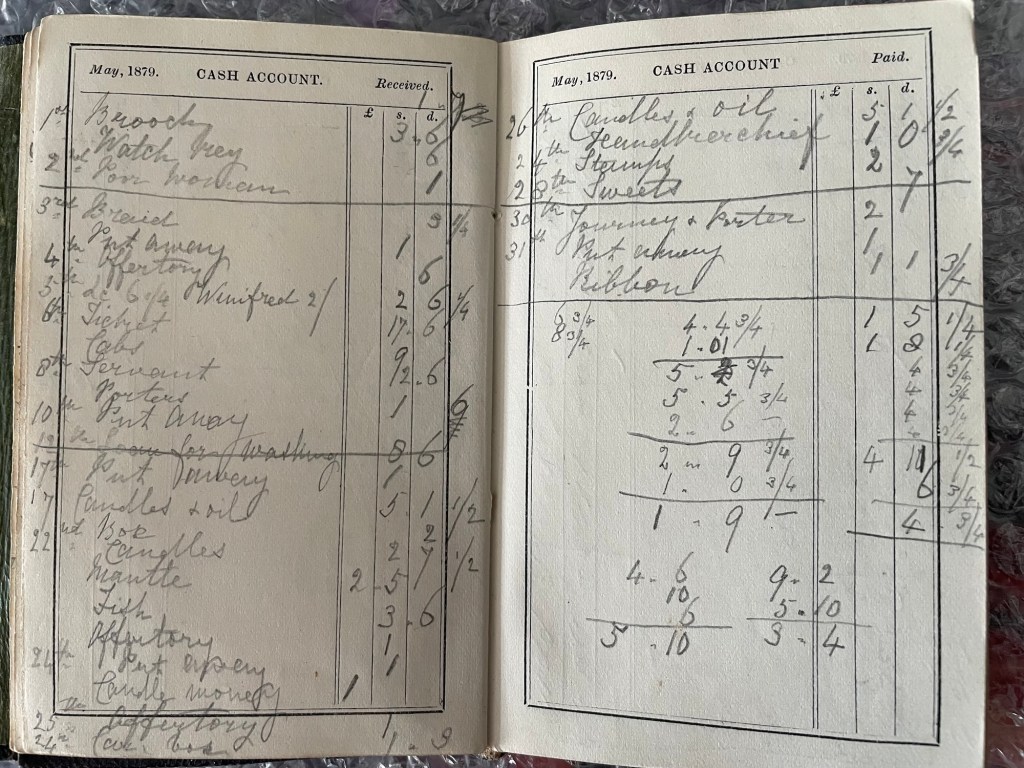 May, 1879. CASH ACCOUNT. Received.
£ s. d.
1st Brooch 3 . 6
Watch key 6
2nd Poor woman 1
3rd Braid 3 1/4
Put away 1
4th Offertory 6
5th Winifred 2/ 2 6 1/4
6th Ticket 17 . 6
Cabs 9
8th Servant 2 . 6
Porters 1
10th Put away
for washing 8 6
17th Put away 1
17 Candles & oil 5 . 1 1/2
22nd Box 2
Candles 2 7 1/2
Mantle 2 - 5
Fish 3 . 6
Offertory 1
24th Put away 1
Candle money 1
25th Offertory 1
24th box 1 . 9
May, 1879. CASH ACCOUNT Paid.
£ s. d.
26th Candles & oil 5 1 1/2
Handkerchief 1 0 3/4
24th Stamps 2
28th Sweets 7
30th Journey & Porter 2
31st Put away 1
Ribbon 1 1 3/4
6 3/4 4 . 4 3/4 1 5 1/4
8 3/4 1 . 01 1 8 1/4
5 . 3/4 4 3/4
5 . 5 3/4 4 3/4
2 . 6 - 4
2 - 9 3/4 4 11 1/2
1 . 0 3/4 6 3/4
1 - 9 - 4 3/4
4 - 6 9 - 2
10 5 . 10
6
5 - 10 3 - 4